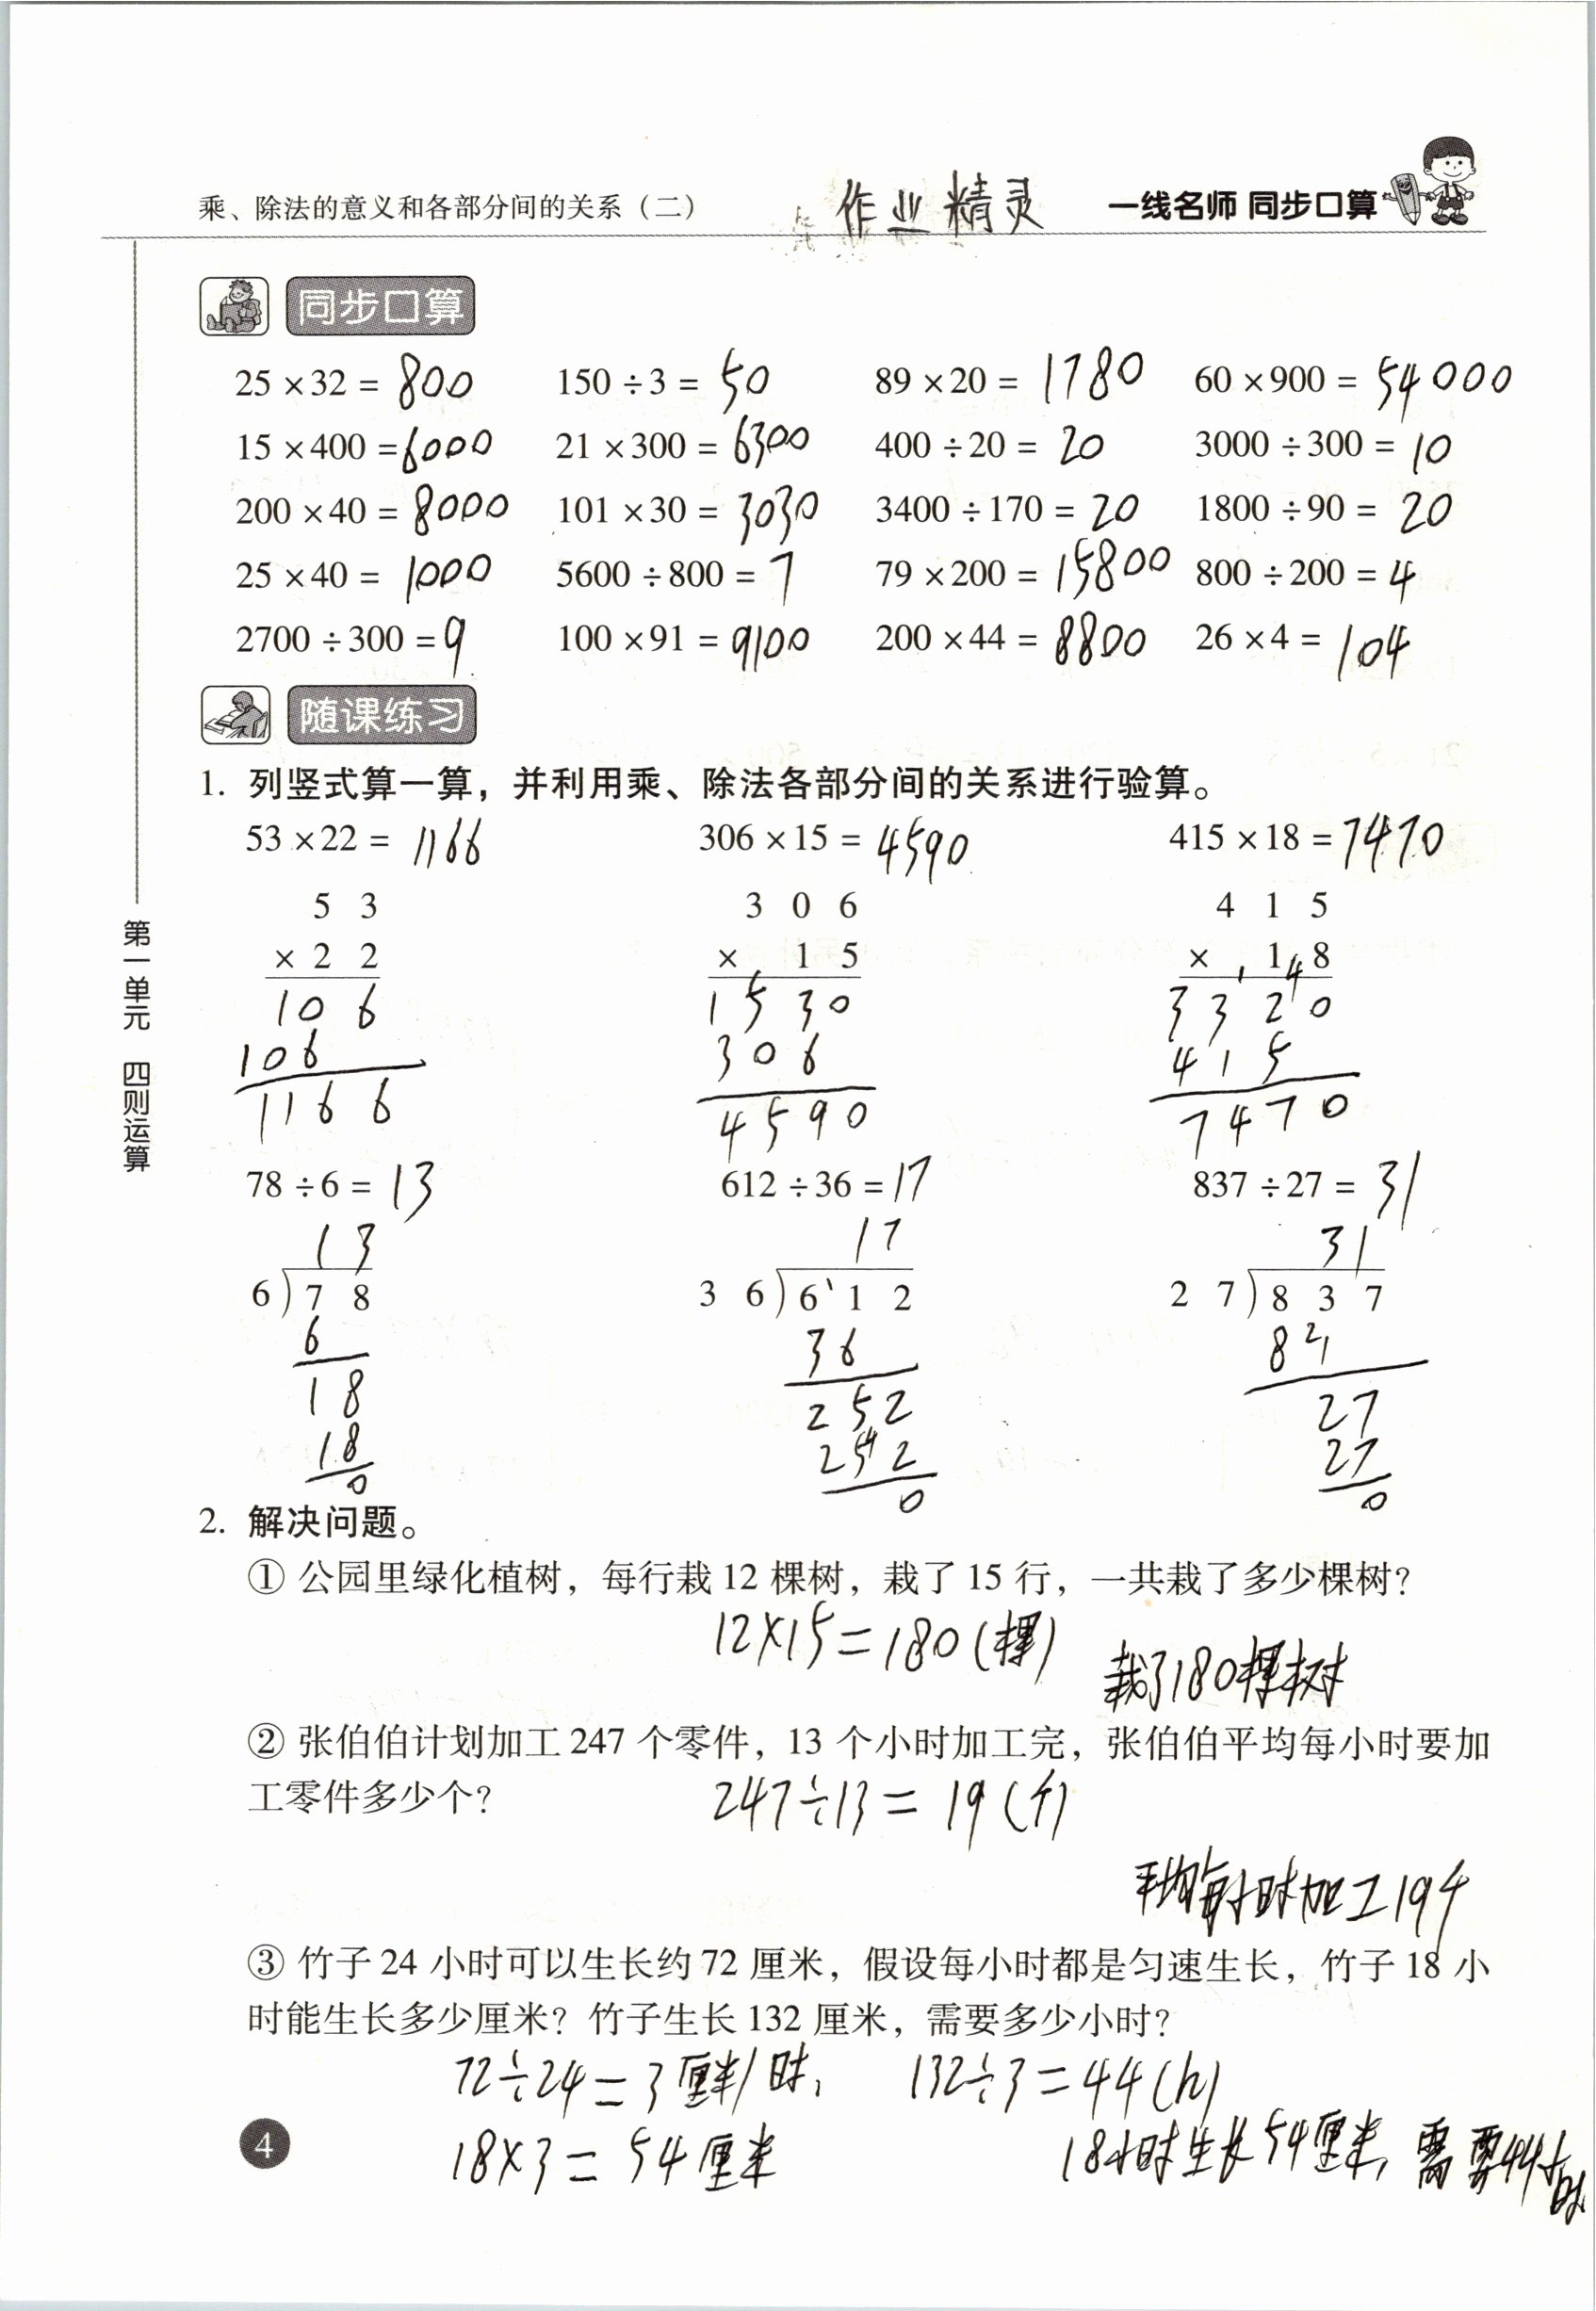 乘、除法的意义和各部分间的关系（二） 作业精灵 一线名师 同步口算
同步口算
25×32=800 150÷3=50 89×20=1780 60×900=54000
15×400=6000 21×300=6300 400÷20=20 3000÷300=10
200×40=8000 101×30=3030 3400÷170=20 1800÷90=20
25×40=1000 5600÷800=7 79×200=15800 800÷200=4
2700÷300=9 100×91=9100 200×44=8800 26×4=104
随课练习
1. 列竖式算一算，并利用乘、除法各部分间的关系进行验算。
53×22=1166 306×15=4590 415×18=7470
5 3 3 0 6 4 1 5
×2 2 × 1 5 × 1 8
106 1530 3320
106 306 415
1166 4590 7470
78÷6=13 612÷36=17 837÷27=31
13 17 31
6)7 8 3 6)6 1 2 2 7)8 3 7
6 36 81
18 252 27
18 252 27
0 0 0
2. 解决问题。
① 公园里绿化植树，每行栽12棵树，栽了15行，一共栽了多少棵树？
12×15=180(棵)
栽了180棵树
② 张伯伯计划加工247个零件，13个小时加工完，张伯伯平均每小时要加
工零件多少个？
247÷13=19(个)
平均每小时加工19个
③ 竹子24小时可以生长约72厘米，假设每小时都是匀速生长，竹子18小
时能生长多少厘米？竹子生长132厘米，需要多少小时？
72÷24=3厘米/时， 132÷3=44(h)
18×3=54厘米
18小时生长54厘米，需要44小时
4
第一单元 四则运算